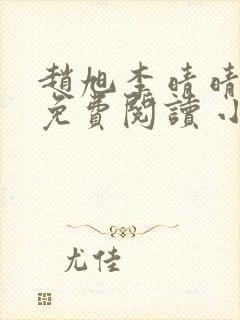 趙旭李晴晴
免費閱讀小
尤佳